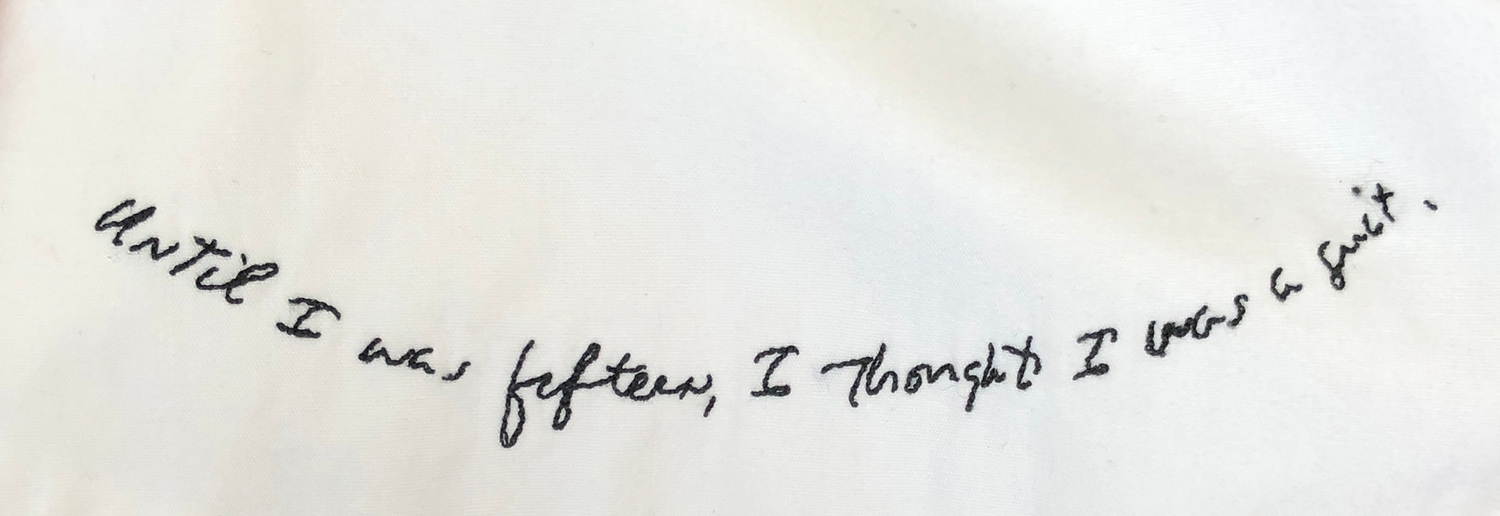 Until I was fifteen, I Thought I was a suit.